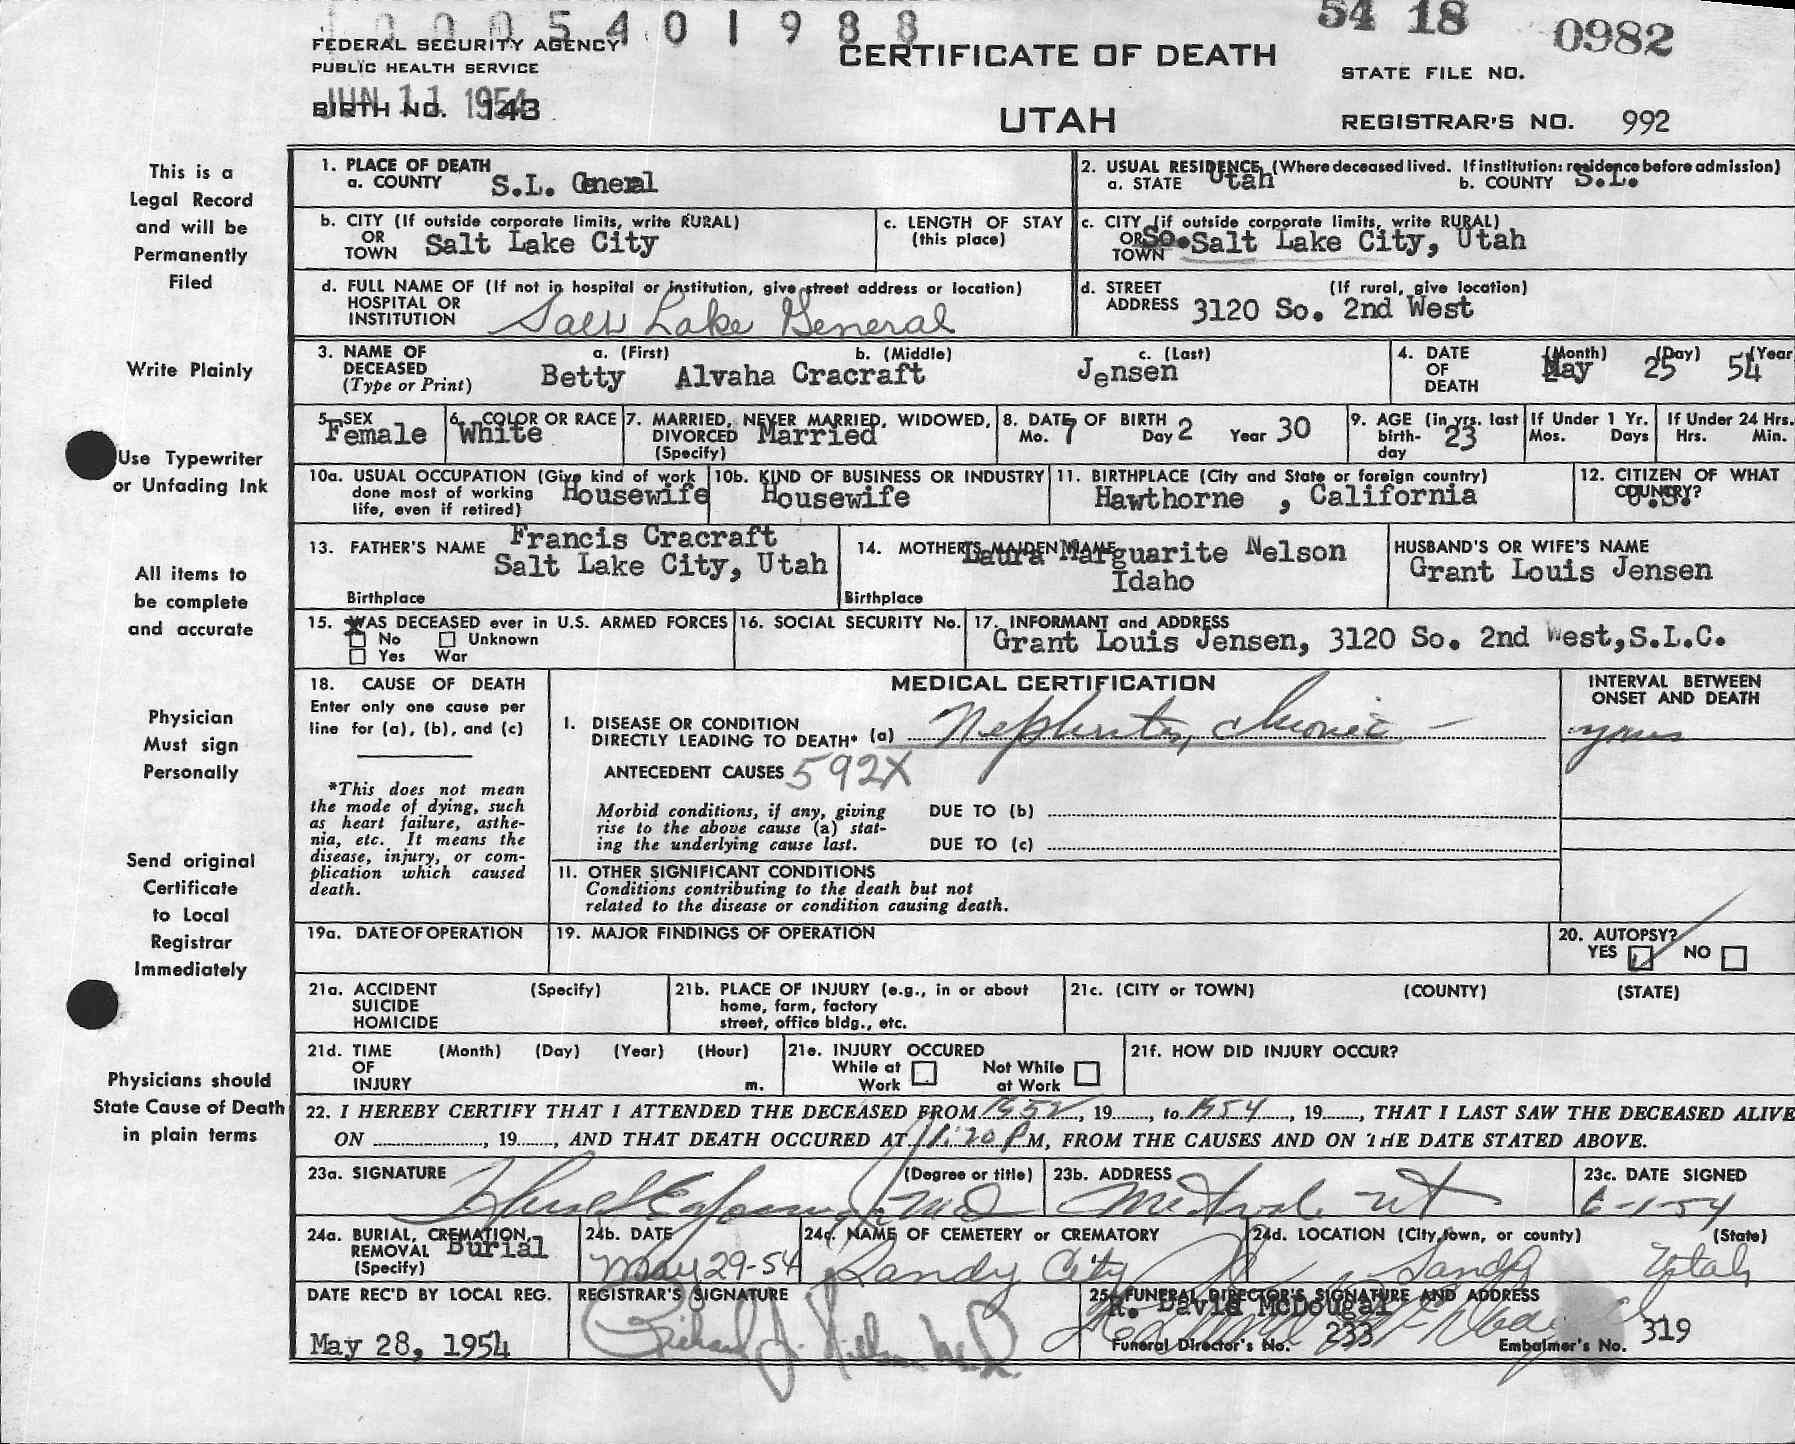 1 0 0 0 5 4 0 1 9 8 8
54 18 0982
FEDERAL SECURITY AGENCY
PUBLIC HEALTH SERVICE
CERTIFICATE OF DEATH
STATE FILE NO.
JUN 11 1954
BIRTH NO. 143
UTAH
REGISTRAR'S NO. 992
This is a
Legal Record
and will be
Permanently
Filed
Write Plainly
Use Typewriter
or Unfading Ink
All items to
be complete
and accurate
Physician
Must sign
Personally
Send original
Certificate
to Local
Registrar
Immediately
Physicians should
State Cause of Death
in plain terms
1. PLACE OF DEATH
a. COUNTY S.L. General
2. USUAL RESIDENCE (Where deceased lived. If institution: residence before admission)
a. STATE Utah b. COUNTY S.L.
b. CITY (If outside corporate limits, write RURAL)
OR
TOWN Salt Lake City
c. LENGTH OF STAY
(this place)
c. CITY (if outside corporate limits, write RURAL)
OR
TOWN So. Salt Lake City, Utah
d. FULL NAME OF (If not in hospital or institution, give street address or location)
HOSPITAL OR
INSTITUTION Salt Lake General
d. STREET (If rural, give location)
ADDRESS 3120 So. 2nd West
3. NAME OF DECEASED (Type or Print)
a. (First) b. (Middle) c. (Last)
Betty Alvaha Cracraft Jensen
4. DATE OF DEATH
(Month) (Day) (Year
May 25 54
5. SEX
Female
6. COLOR OR RACE
White
7. MARRIED, NEVER MARRIED, WIDOWED,
DIVORCED Married
(Specify)
8. DATE OF BIRTH
Mo. 7 Day 2 Year 30
9. AGE (in yrs. last
birthday 23
If Under 1 Yr.
Mos. Days
If Under 24 Hrs.
Hrs. Min.
10a. USUAL OCCUPATION (Give kind of work
done most of working
life, even if retired) Housewife
10b. KIND OF BUSINESS OR INDUSTRY
Housewife
11. BIRTHPLACE (City and State or foreign country)
Hawthorne , California
12. CITIZEN OF WHAT
COUNTRY? U.S.
13. FATHER'S NAME Francis Cracraft
Salt Lake City, Utah
Birthplace
14. MOTHER'S MAIDEN NAME Laura Marguarite Nelson
Idaho
Birthplace
HUSBAND'S OR WIFE'S NAME
Grant Louis Jensen
15. WAS DECEASED ever in U.S. ARMED FORCES
X No Unknown
Yes War
16. SOCIAL SECURITY No.
17. INFORMANT and ADDRESS
Grant Louis Jensen, 3120 So. 2nd West,S.L.C.
18. CAUSE OF DEATH
Enter only one cause per
line for (a), (b), and (c)
*This does not mean
the mode of dying, such
as heart failure, asthe-
nia, etc. It means the
disease, injury, or com-
plication which caused
death.
MEDICAL CERTIFICATION
INTERVAL BETWEEN
ONSET AND DEATH
I. DISEASE OR CONDITION
DIRECTLY LEADING TO DEATH* (a) Nephritis, chronic - yrs
ANTECEDENT CAUSES 592X
Morbid conditions, if any, giving
rise to the above cause (a) stat-
ing the underlying cause last.
DUE TO (b)
DUE TO (c)
II. OTHER SIGNIFICANT CONDITIONS
Conditions contributing to the death but not
related to the disease or condition causing death.
19a. DATE OF OPERATION
19. MAJOR FINDINGS OF OPERATION
20. AUTOPSY?
YES NO
21a. ACCIDENT (Specify)
SUICIDE
HOMICIDE
21b. PLACE OF INJURY (e.g., in or about
home, farm, factory
street, office bldg., etc.
21c. (CITY or TOWN) (COUNTY) (STATE)
21d. TIME (Month) (Day) (Year) (Hour)
OF
INJURY m.
21e. INJURY OCCURED
While at Work Not While at Work
21f. HOW DID INJURY OCCUR?
22. I HEREBY CERTIFY THAT I ATTENDED THE DECEASED FROM 1952, 19......, to 1954, 19......, THAT I LAST SAW THE DECEASED ALIVE
ON ...................., 19......, AND THAT DEATH OCCURED AT 11:20 P M, FROM THE CAUSES AND ON THE DATE STATED ABOVE.
23a. SIGNATURE (Degree or title)
MD
23b. ADDRESS
Midvale Ut
23c. DATE SIGNED
6-1-54
24a. BURIAL, CREMATION,
REMOVAL Burial
(Specify)
24b. DATE
May 29-54
24c. NAME OF CEMETERY or CREMATORY
Sandy City
24d. LOCATION (City, town, or county) (State)
Sandy Utah
DATE REC'D BY LOCAL REG.
May 28, 1954
REGISTRAR'S SIGNATURE
Richard J. Nielsen M.D.
25. FUNERAL DIRECTOR'S SIGNATURE AND ADDRESS
R. David McDougal
Funeral Director's No. 233 Embalmer's No. 319